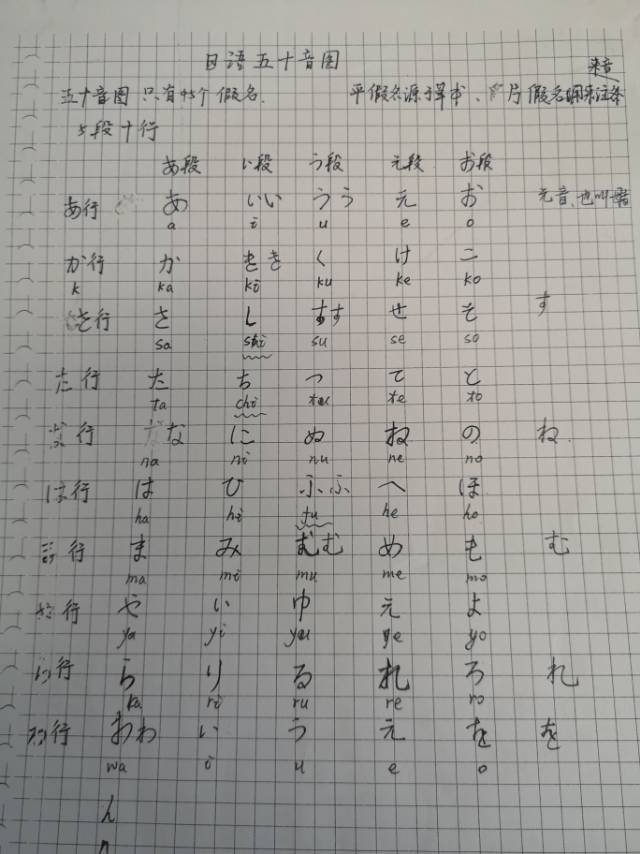 日语五十音图
五十音图 只有45个假名. 平假名源于草书、片假名
5段十行
あ段 い段 う段 え段 お段
あ行 あ いい うう え お 元音、也叫
a i u e o
か行 か きき く け こ
k ka ki ku ke ko
さ行 さ し すす せ そ す
sa shi su se so
た行 た ち つ て と
ta chi te to
な行 な に ぬ ね の ね.
na ni nu ne no
は行 は ひ ふふ へ ほ
ha hi fu he ho
行 ま み むむ め も む
ma mi mu me mo
行 や い ゆ え よ
ya yi yu ye yo
行 ら り る れ ろ れ
ka ri ru re ro
行 わ い う え を を
wa i u e o
ん
n